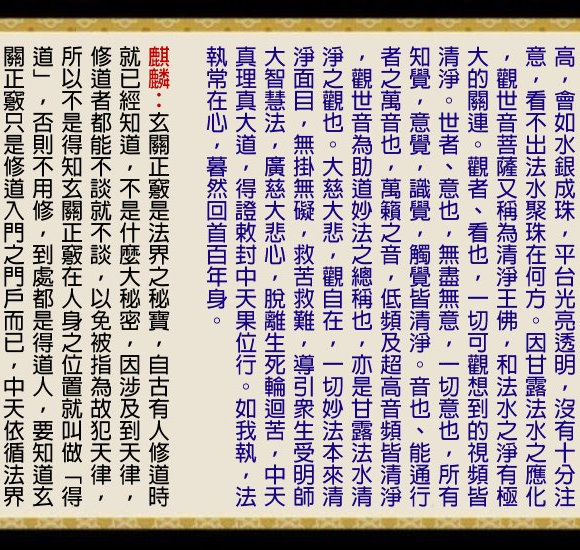 高，會如水銀成珠，平台光亮透明，沒有十分注
意，看不出法水聚珠在何方。因甘露法水之應化
，觀世音菩薩又稱為清淨王佛，和法水之淨有極
大的關連。觀者、看也，一切可觀想到的視頻皆
清淨。世者、意也，無盡無意，一切意也，所有
知覺，意覺，識覺，觸覺皆清淨。音也、能通行
者之萬音也，萬籟之音，低頻及超高音頻皆清淨
，觀世音為助道妙法之總稱也，亦是甘露法水清
淨之觀也。大慈大悲，觀自在，一切妙法本來清
淨面目，無掛無礙，救苦救難，導引衆生受明師
大智慧法，廣慈大悲心，脫離生死輪迴苦，中天
真理真大道，得證敕封中天果位行。如我執，法
執常在心，暮然回首百年身。
麒麟：玄關正竅是法界之秘寶，自古有人修道時
就已經知道，不是什麼大秘密，因涉及到天律，
修道者都能不談就不談，以免被指為故犯天律，
所以不是得知玄關正竅在人身之位置就叫做「得
道」，否則不用修，到處都是得道人，要知道玄
關正竅只是修道入門之門戶而已，中天依循法界